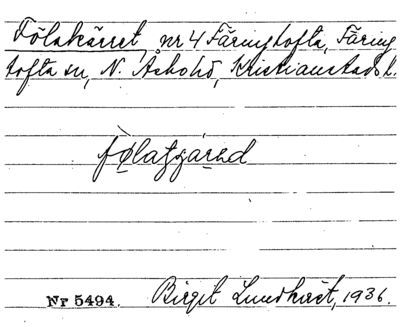 Fölakärret, nr 4 Färingtofta, Färing
tofta sn, N. Åsbo hd, Kristianstads l.
Nr 5494. Birgit Lundkvist, 1936.